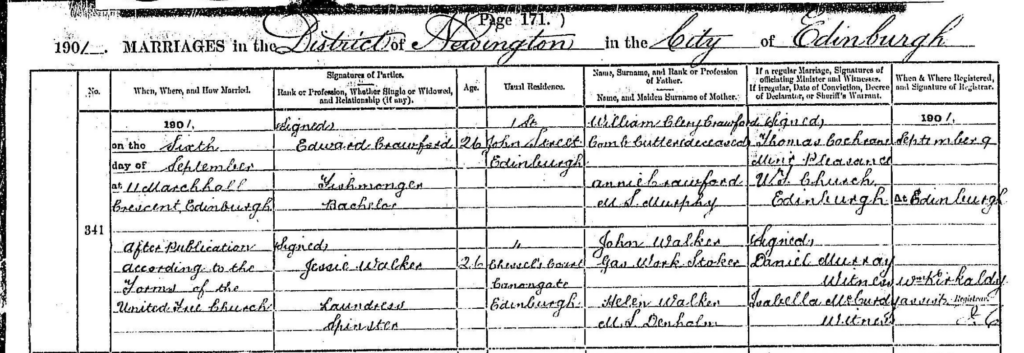 (Page 171.)
1901. MARRIAGES in the District of Newington in the City of Edinburgh
No.
When, Where, and How Married.
Signatures of Parties.
Rank or Profession, Whether Single or Widowed, and Relationship (if any).
Age.
Usual Residence.
Name, Surname, and Rank or Profession of Father.
Name, and Maiden Surname of Mother.
If a regular Marriage, Signatures of officiating Minister and Witnesses.
If irregular, Date of Conviction, Decree of Declarator, or Sheriff's Warrant.
When & Where Registered, and Signature of Registrar.
341
1901,
on the Sixth
day of September
at 11 Marchhall
Crescent, Edinburgh
After Publication
according to the
Forms of the
United Free Church
Signed
Edward Crawford
Fishmonger
Bachelor
26
1 St
John Street
Edinburgh
William Crawford
Comb Cutter (deceased)
Annie Crawford
M.S. Murphy
Signed
Thomas Cochrane
Minr Pleasance
U.F. Church
Edinburgh
1901,
September 9
At Edinburgh
Signed
Jessie Walker
Laundress
Spinster
26
Chessel's Court
Canongate
Edinburgh
John Walker
Gas Work Stoker
Helen Walker
M.S. Denholm
Signed
Daniel Murray
Witness
Isabella
Witness
Wm Kirkaldy
assist Registrar.